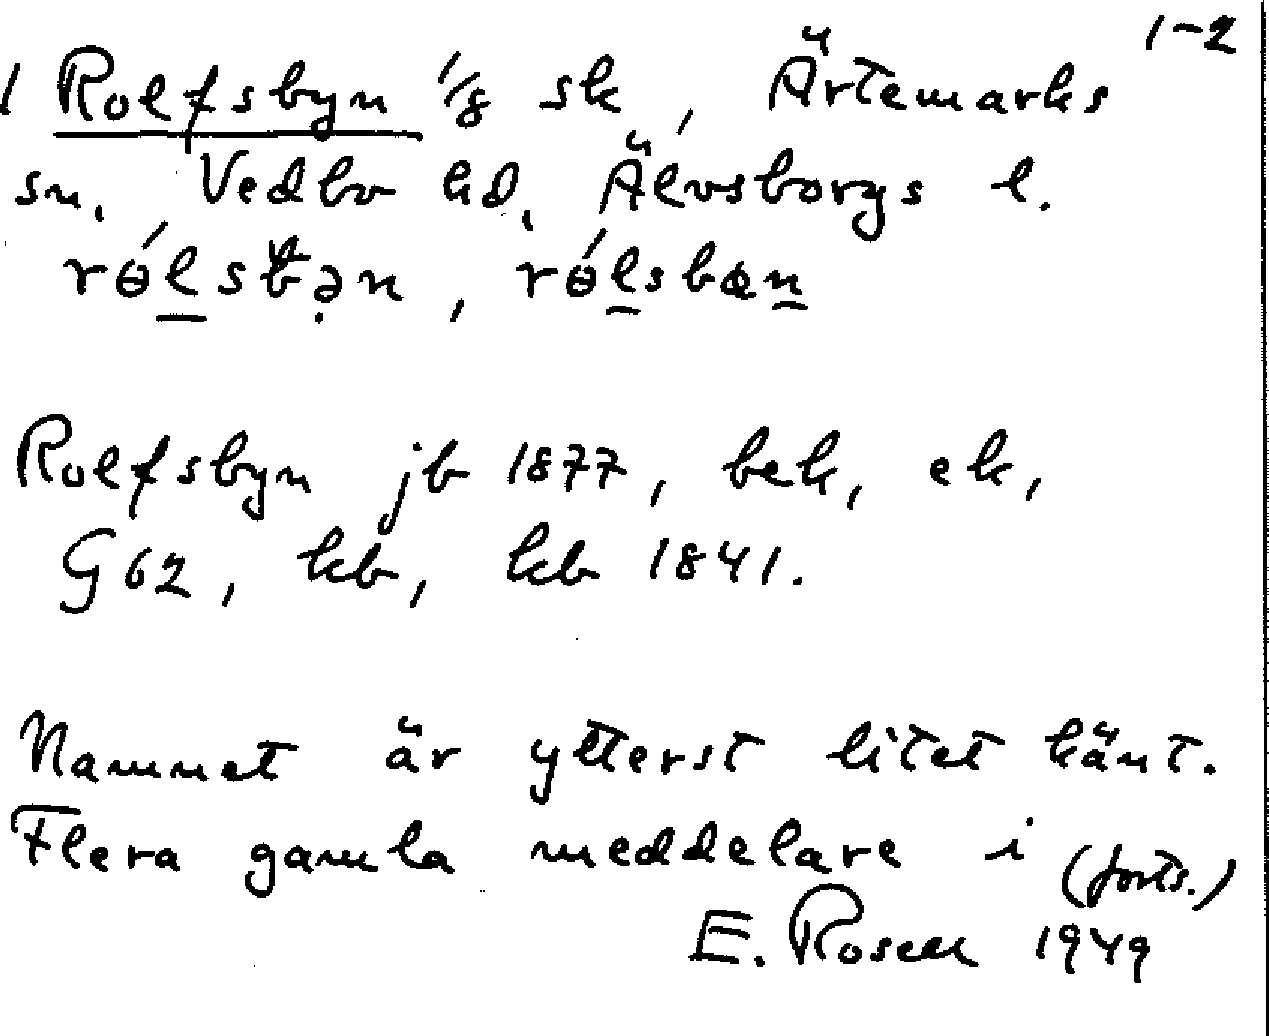 1-2
1 Rolfsbyn 1/8 sk, Ärtemarks
sn. Vedbo hd, Älvsborgs l.
Rolfsbyn jb 1877, bek, ek,
G 62, kb, kb 1841.
Namnet är ytterst litet känt.
Flera gamla meddelare i (forts.)
E. Rosell 1949